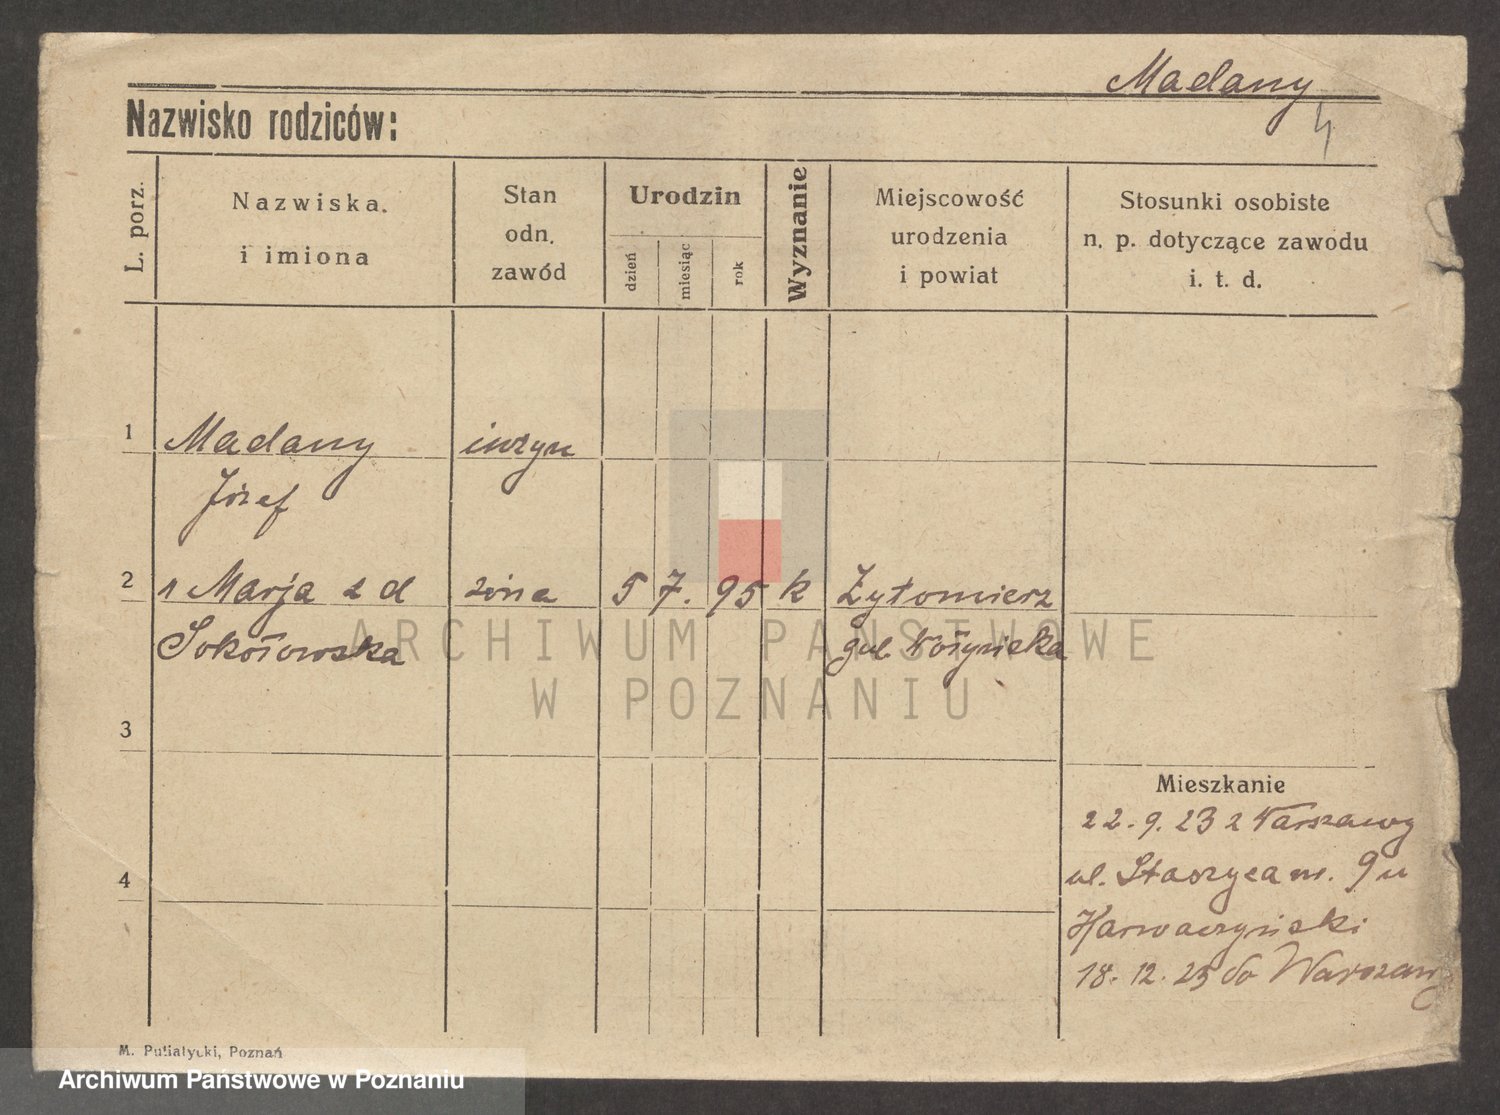 Madany
4
Nazwisko rodziców:
L. porz.
Nazwiska.
i imiona
Stan
odn.
zawód
Urodzin
dzień
miesiąc
rok
Wyznanie
Miejscowość
urodzenia
i powiat
Stosunki osobiste
n. p. dotyczące zawodu
i. t. d.
1 Madany inżyn
Józef
2 Marja z d żona 5 7. 95 k Żytomierz
Sokołowska gub Wołyńska
ARCHIWUM PAŃSTWOWE
W POZNANIU
3
Mieszkanie
22.9.23 z Warszawy
4
ul. Staszyca nr. 9 u
18.12.25 do Warszawy
M. Putiatycki, Poznań
Archiwum Państwowe w Poznaniu